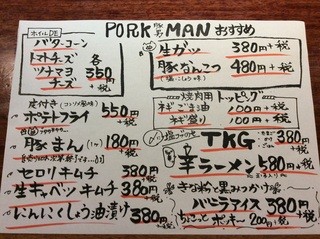 PORK 豚男 MAN おすすめ
ホイルDE
バターコーン
トマトチーズ 各
ツナマヨチーズ 350円+税
生ガツ 380円+税
豚なんこつ 480円+税
焼肉用 トッピング
ネギごま油 100円+税
ネギ盛り 100円+税
皮付き
ポテトフライ 550円+税
豚まん(1ヶ) 180円+税
セロリキムチ 380円+税
生キャベツキムチ 380円
にんにくしょう油漬け 380円+税
TKG 380円+税
辛ラーメン 580円+税
きな粉と黒みつかけ
バニラアイス 380円+税
ちょこっとポッキー 200円+税